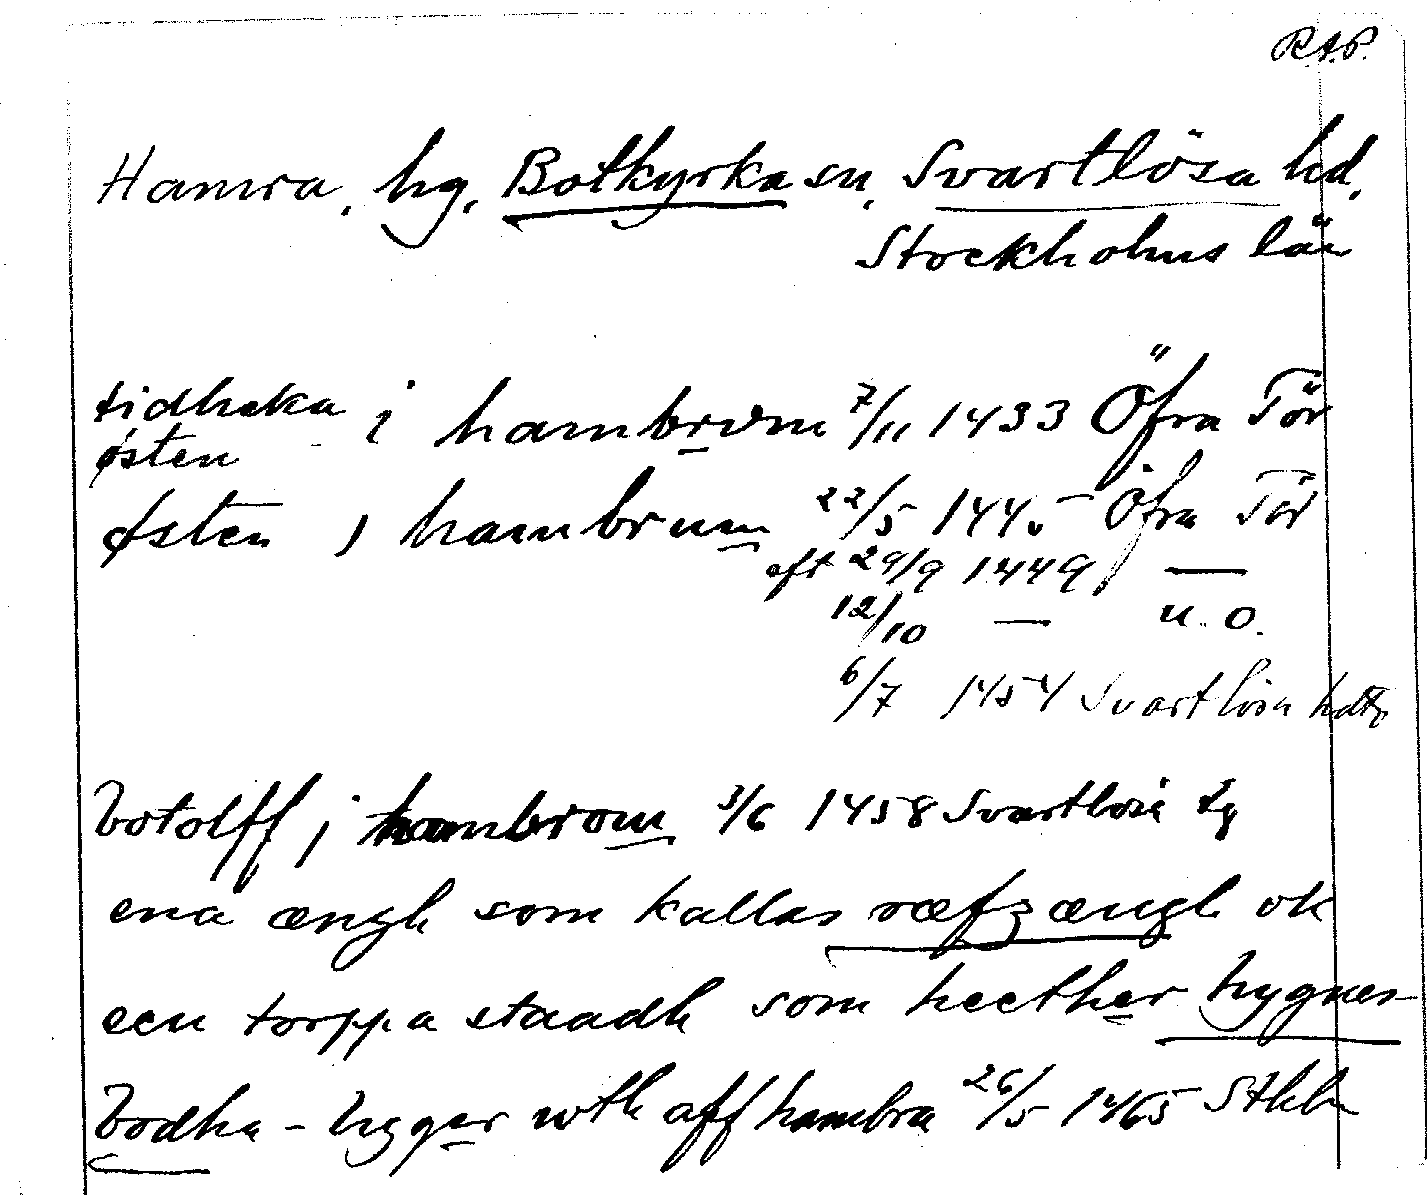 R.A.P.
Hamra, hg, Botkyrka sn, Svartlösa hd,
Stockholms län
tidheka i hambrvm 7/11 1433 Öfra Tör
østen
østen j hambrum 22/5 1445 Öfra Tör
eft 29/9 1449 —
12/10 — u. o.
6/7 1454 Svartlösa
botolff j hambrom 3/6 1458 Svartlösa
ena ængh som kallas ræfzængh ok
een torppa staadh som heether
bodha - ligger wth aff hambra 26/5 1465 Sthlm